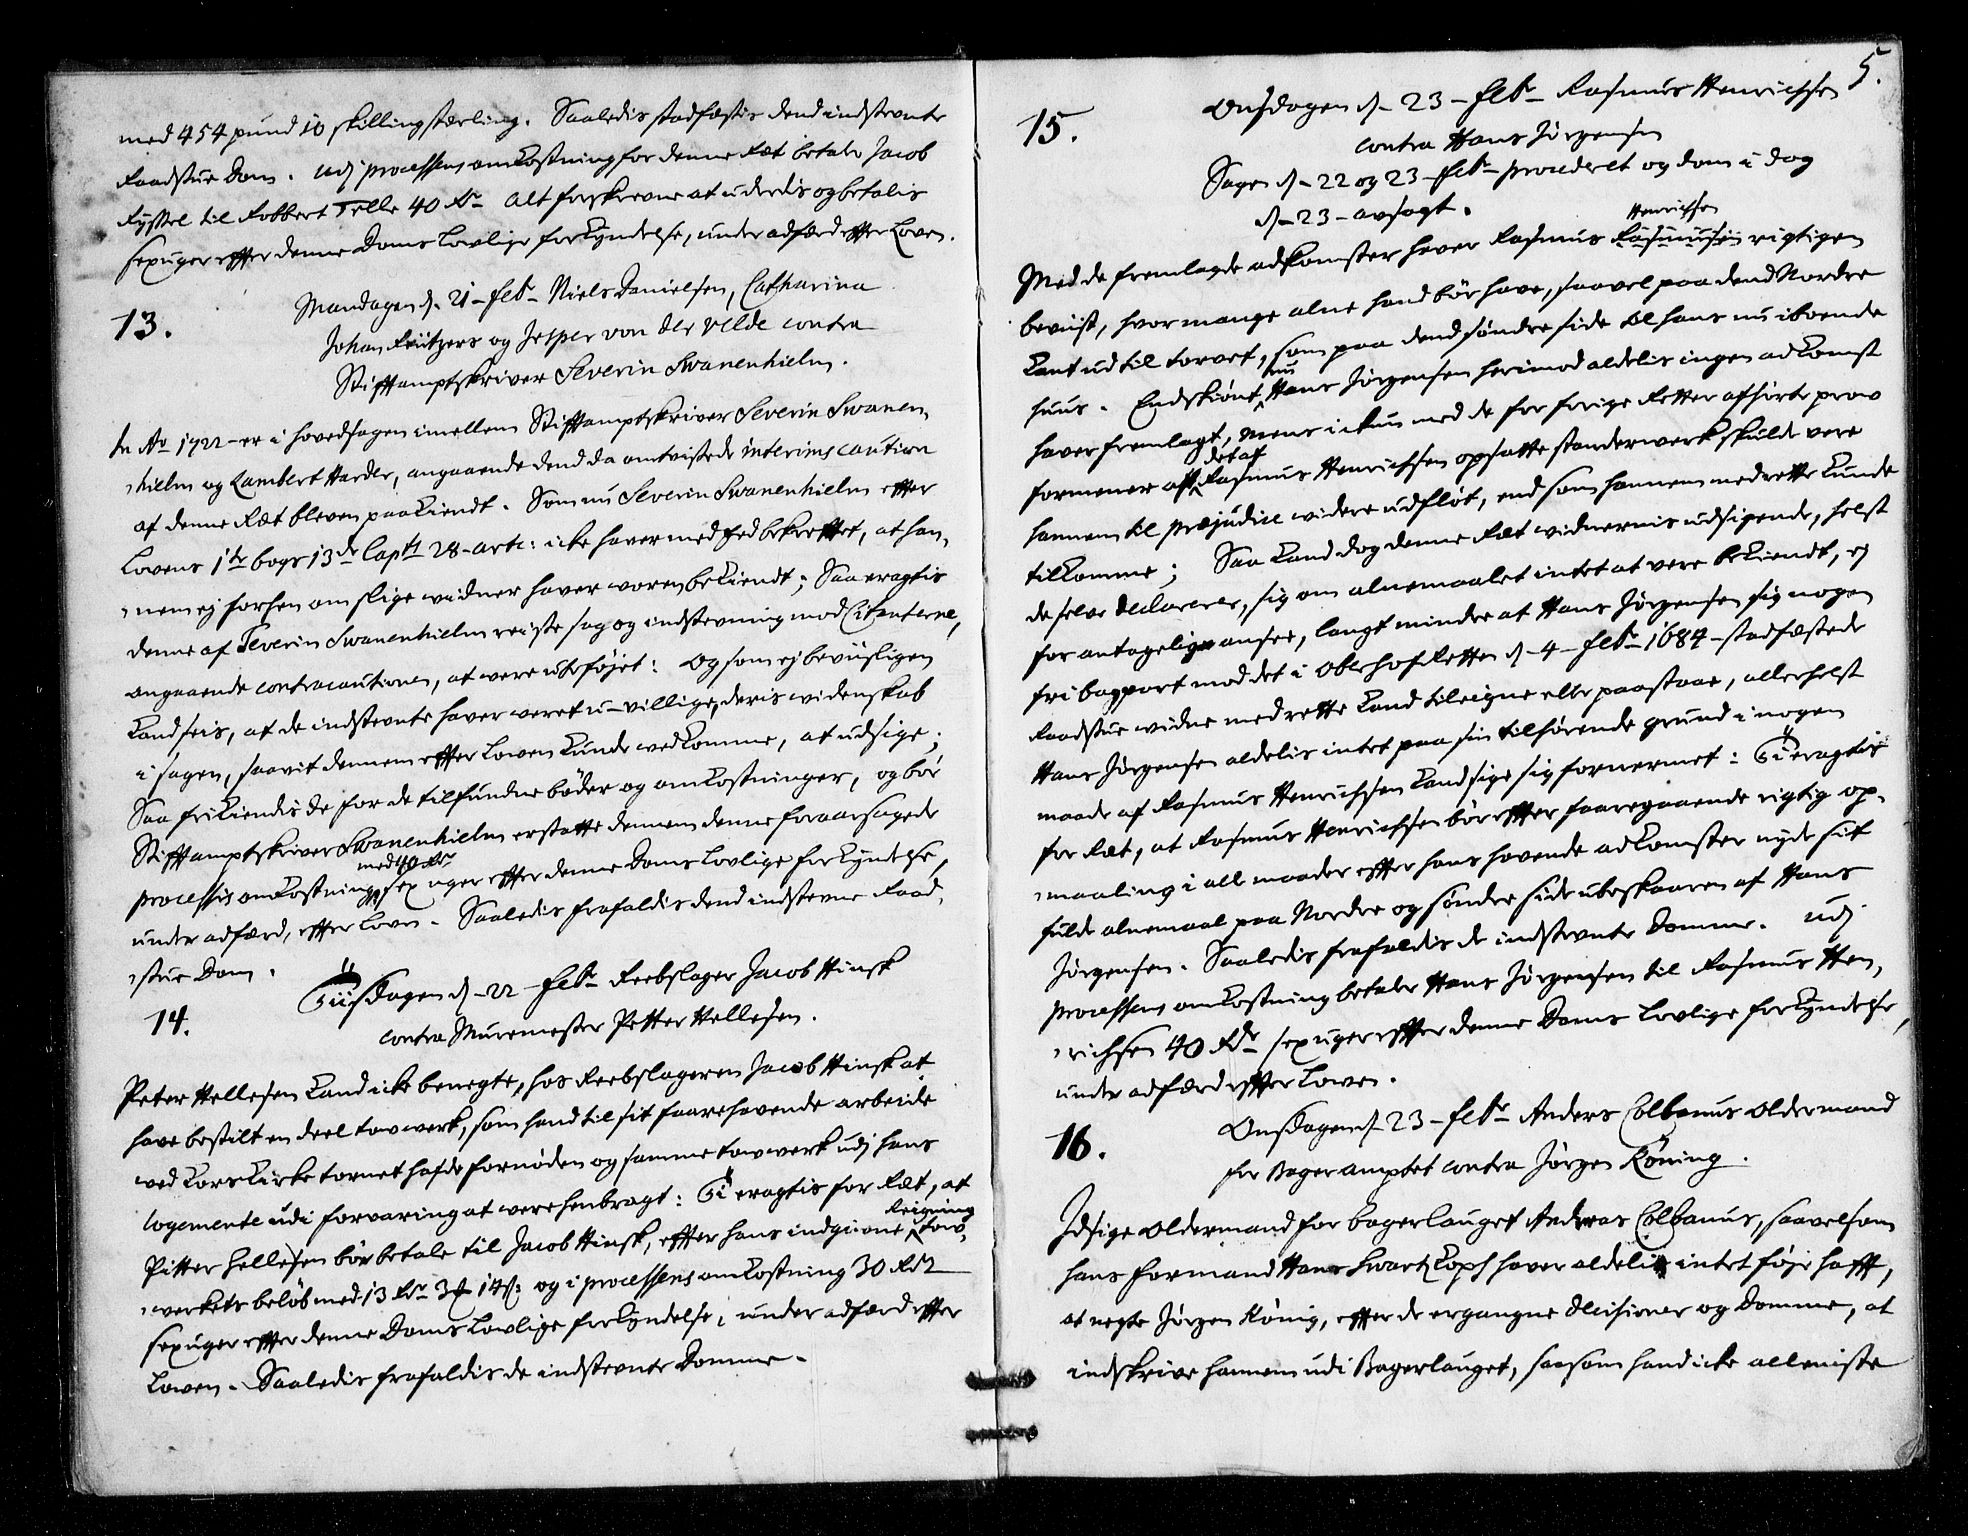 med 454 pund 10 skilling sterling. Saaledis stadfæstis dend indstevnte
Raadstue Dom. Udj processens omkostning for denne Ret betaler Jacob
Fyssel til Robbert Telle 40 Rdr Alt forskrevne at uderdis og betalis
sex uger effter denne Doms Lovlige forkyndelse, under adfærd effter Loven.
13.
Mandagen d. 21 Febr Niels Danielsen, Catharina
Johan Frützers og Jesper von der Velde contra
Stifftamptskriver Severin Swanenhielm.
In Ao 1722 er i hovedsagen imellem Stifftamptskriver Severin Swanen-
hielm og Lambert Harder, angaaende dend da omtvistede interims caution
af denne Ret bleven paakiendt. Som nu Severin Swanenhielm effter
Lovens 1te bogs 13de Capts 28 artic: icke haver med Eed bekrefftet, at han-
nem ej forhen om slige widner haver voren bekiendt; Saa eragtis
denne af Severin Swanenhielm reiste sag og indstevning mod Citanterne,
angaaende contracautionen, at were ubeføjet: Og som ej bevüsligen
Kand seis, at de indstevnte haver veret u-villige, deris widenskab
i sagen, saavit dennem effter Lowen kunde wedkomme, at udsige;
Saa frikiendis de for de tilfundne bøder og omkostninger, og bør
Stifftamptskriver Swanenhielm erstatte dennem denne foraarsagede
processis omkostning med 40 Rdr sex uger effter denne Doms Lovlige forkyndelse,
under adfærd, effter Loven. Saaledis frafaldis dend indstevne Raad-
stue Dom.
14.
Tiisdagen d. 22 Febr Reebslager Jacob Hinsk
contra Muremester Petter Hellesen.
Peter Hellesen Kand icke benegte, hos Reebslageren Jacob Hinsk at
have bestilt en deel towwerk, som hand til sit faarehavende arbeide
wed Cors Kirke tornet hafde fornøden og samme towwerk udj hans
logemente udi forvaring at were henbragt: Ti eragtis for Ret, at
Pitter Hellesen bør betale til Jacob Hinsk, effter hans indgivne Reigning tow-
werkets beløb med 13 Rdr 3 ℳ 14 ß: og i processens omkostning 30 Rdr
sex uger effter denne Doms Lovlige forkyndelse, under adfærd effter
Lowen. Saaledis frafaldis de indstevnte Domme.
5.
15.
Onsdagen d. 23 Febr Rasmus Henrichsen
contra Hans Jørgensen
Sagen d. 22 og 23 Febr procederet og dom i dag
d. 23 avsagt.
Med de fremlagde adkomster haver Rasmus Rasmussen Henrichsen rigtigen
beviist, hvor mange alne hand bør have, saavel paa dend Nordre
Kant ud til torvet, som paa dend søndre side til hans nu iboende
huus. Endskiønt nu Hans Jørgensen herimod aldelis ingen adkomst
haver fremlagt, mens ickun med de for forige Retter afhørte prov
formener at det aff Rasmus Henrichsen opsatte standerwerk skulde vere
hannem til præjudice widere udfløt, end som hannem med rette kunde
tilkomme; Saa kand dog denne Ret widnernis udsigende, helst
de selve declarerer, sig om alnemaalet intet at vere bekiendt, ej
for antageligen ansee, langt mindre at Hans Jørgensen sig nogen
fri bagport mod det i Oberhofretten d. 4 Febr 1684 stadfæstede
Raadstue widne med rette kand tileigne eller paastaae, allerhelst
Hans Jørgensen aldelis intet paa sin tilhørende grund i nogen
maade af Rasmus Henrichsen kand sige sig fornermet: Ti eragtis
for Ret, at Rasmus Henrichsen bør effter faaregaaende rigtig op-
maaling i alle maader effter hans havende adkomster nyde sit
fulde alnemaal paa Nordre og søndre side ubeskaaren af Hans
Jørgensen. Saaledis frafaldis de indstevnte Domme. Udj
processens omkostning betaler Hans Jørgensen til Rasmus Hen-
richsen 40 Rdr sex uger effter denne Doms Lovlige forkyndelse,
under adfærd effter Lowen.
16.
Onsdagen d. 23 Febr Anders Colbanus Oldermand
for Bager amptet contra Jørgen Køning.
Idsige Oldermand for bagerlauget Andreas Colbanus, saavelsom
hans formand Hans Swartzkopf haver aldelis intet føje hafft,
at negte Jørgen Kønig, effter de ergangne decisioner og Domme, at
indskrive hannem udi Bagerlauget, saasom hand icke alleniste